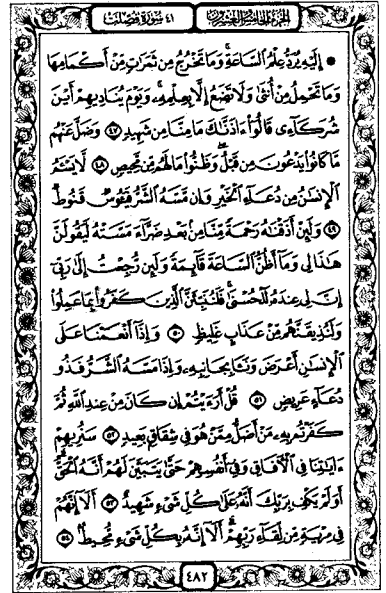 الجزء الخامس والعشرون
٤١ سورة فصلت
۞ إِلَيْهِ يُرَدُّ عِلْمُ السَّاعَةِ ۚ وَمَا تَخْرُجُ مِن ثَمَرَاتٍ مِّنْ أَكْمَامِهَا
وَمَا تَحْمِلُ مِنْ أُنثَىٰ وَلَا تَضَعُ إِلَّا بِعِلْمِهِ ۚ وَيَوْمَ يُنَادِيهِمْ أَيْنَ
شُرَكَاءِي قَالُوا ءَاذَنَّاكَ مَا مِنَّا مِن شَهِيدٍ ٤٧ وَضَلَّ عَنْهُم
مَّا كَانُوا يَدْعُونَ مِن قَبْلُ ۖ وَظَنُّوا مَا لَهُم مِّن مَّحِيصٍ ٤٨ لَّا يَسْـَٔمُ
الْإِنسَانُ مِن دُعَاءِ الْخَيْرِ وَإِن مَّسَّهُ الشَّرُّ فَيَـُٔوسٌ قَنُوطٌ
٤٩ وَلَئِنْ أَذَقْنَاهُ رَحْمَةً مِّنَّا مِن بَعْدِ ضَرَّاءَ مَسَّتْهُ لَيَقُولَنَّ
هَٰذَا لِي وَمَا أَظُنُّ السَّاعَةَ قَائِمَةً وَلَئِن رُّجِعْتُ إِلَىٰ رَبِّي
إِنَّ لِي عِندَهُ لَلْحُسْنَىٰ ۚ فَلَنُنَبِّئَنَّ الَّذِينَ كَفَرُوا بِمَا عَمِلُوا
وَلَنُذِيقَنَّهُم مِّنْ عَذَابٍ غَلِيظٍ ٥٠ وَإِذَا أَنْعَمْنَا عَلَى
الْإِنسَانِ أَعْرَضَ وَنَـَٔا بِجَانِبِهِ وَإِذَا مَسَّهُ الشَّرُّ فَذُو
دُعَاءٍ عَرِيضٍ ٥١ قُلْ أَرَءَيْتُمْ إِن كَانَ مِنْ عِندِ اللَّهِ ثُمَّ
كَفَرْتُم بِهِ مَنْ أَضَلُّ مِمَّنْ هُوَ فِي شِقَاقٍ بَعِيدٍ ٥٢ سَنُرِيهِمْ
ءَايَاتِنَا فِي الْءَافَاقِ وَفِي أَنفُسِهِمْ حَتَّىٰ يَتَبَيَّنَ لَهُمْ أَنَّهُ الْحَقُّ ۗ
أَوَلَمْ يَكْفِ بِرَبِّكَ أَنَّهُ عَلَىٰ كُلِّ شَيْءٍ شَهِيدٌ ٥٣ أَلَا إِنَّهُمْ
فِي مِرْيَةٍ مِّن لِّقَاءِ رَبِّهِمْ ۗ أَلَا إِنَّهُ بِكُلِّ شَيْءٍ مُّحِيطٌ ٥٤
٤٨٢